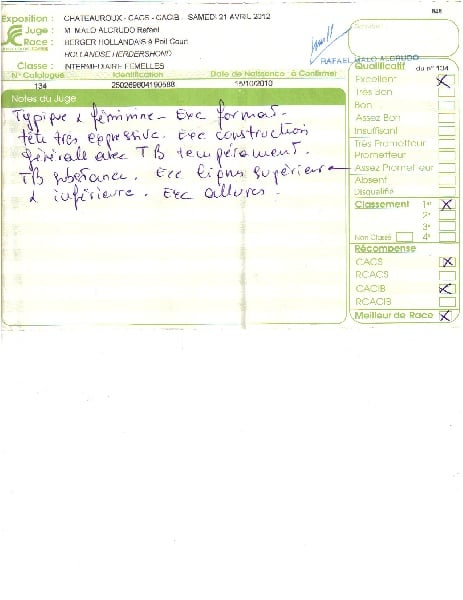 Exposition : CHATEAUROUX - CACS - CACIB - SAMEDI 21 AVRIL 2012
Juge : M. MALO ALCRUDO Rafael
Race : BERGER HOLLANDAIS à Poil Court
HOLLANDSE HERDERSHOND
RAFAEL MALO ALCRUDO
Classe : INTERMEDIAIRE FEMELLES
N° Catalogue Identification Date de Naissance à Confirmer
134 250269604190588 15/10/2010
Notes du Juge
Typique & féminine - Exc format.
tête très expressive. Exc construction
générale avec TB tempérament.
TB substance. Exc lignes supérieure
& inférieure. Exc allures.
Qualificatif du n° 134
Excellent X
Très Bon
Bon
Assez Bon
Insuffisant
Très Prometteur
Prometteur
Assez Prometteur
Absent
Disqualifié
Classement 1er X
2e
3e
Non Classé 4e
Récompense
CACS X
RCACS
CACIB X
RCACIB
Meilleur de Race X